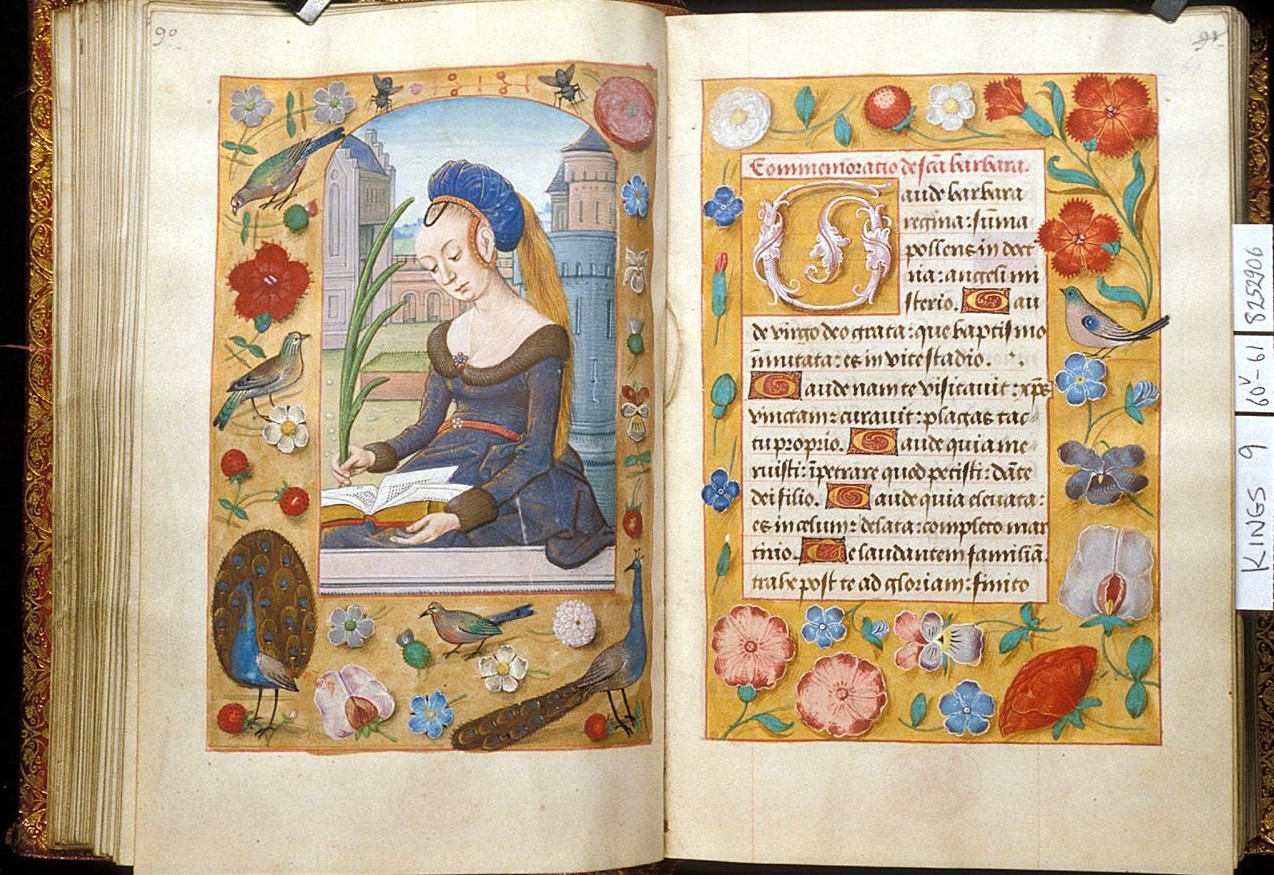 90
91
Commemoratio de scã barbara.
Gaude barbara
regina: sũma
pollens in doct
ria: angeli mi
sterio. Gau
de virgo deo grata: que baptismo
ĩmitata: es in vice stadio.
Gaude nam te visitauit: xp̃s
vinctam: curauit: plagas tac
tu proprio. Gaude quia me
ruisti: ĩpetrare quod petisti: dãte
dei filio. Gaude quia eleuata:
es in celum: delata: completo mar
tirio. Te laudantem familiã.
trahe post te ad gloriam: finito
KINGS 9 60v-61 8252906